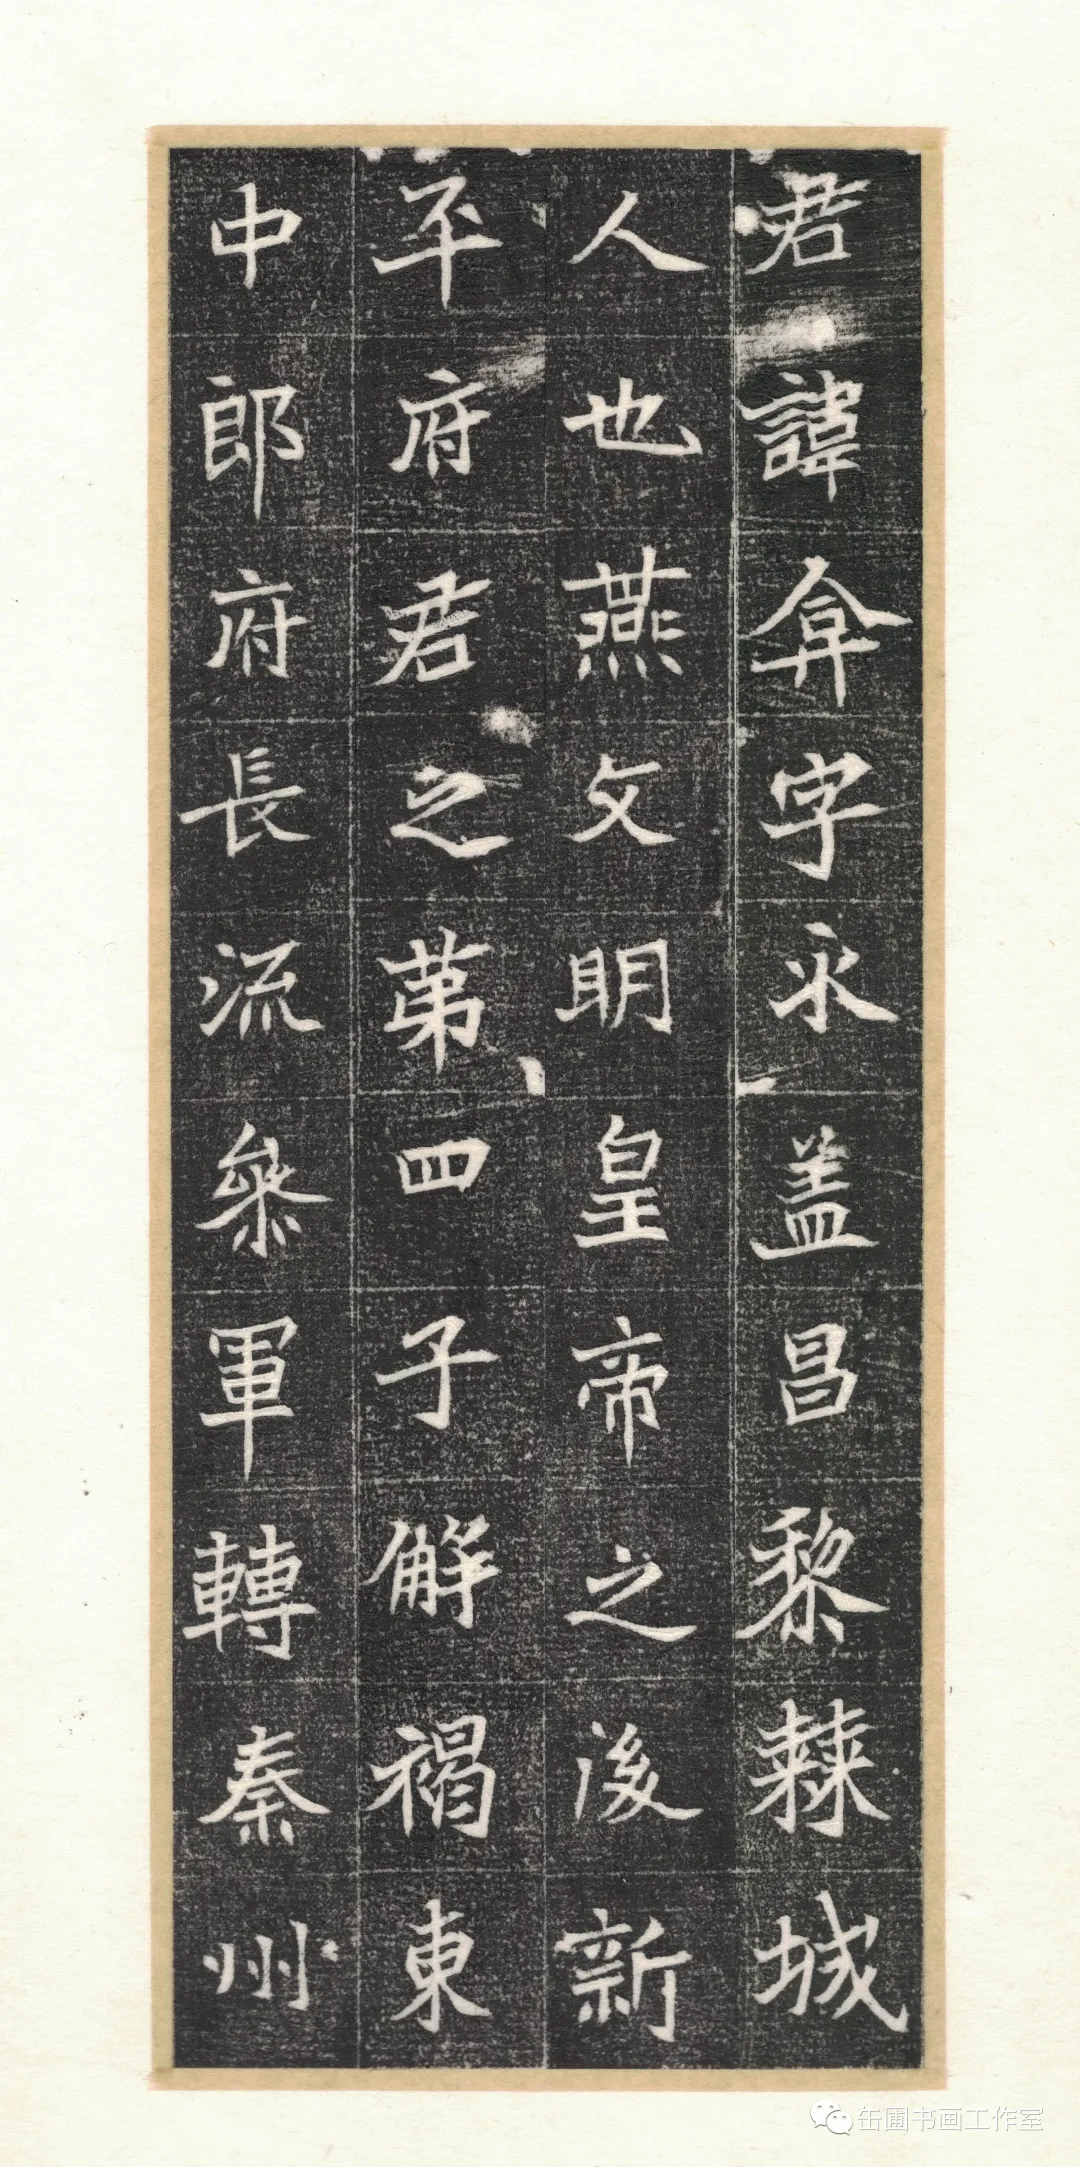 君諱弇字永盖昌黎棘城
人也燕文明皇帝之後新
平府君之苐四子解褐東
中郎府長流參軍轉秦州
缶圃书画工作室